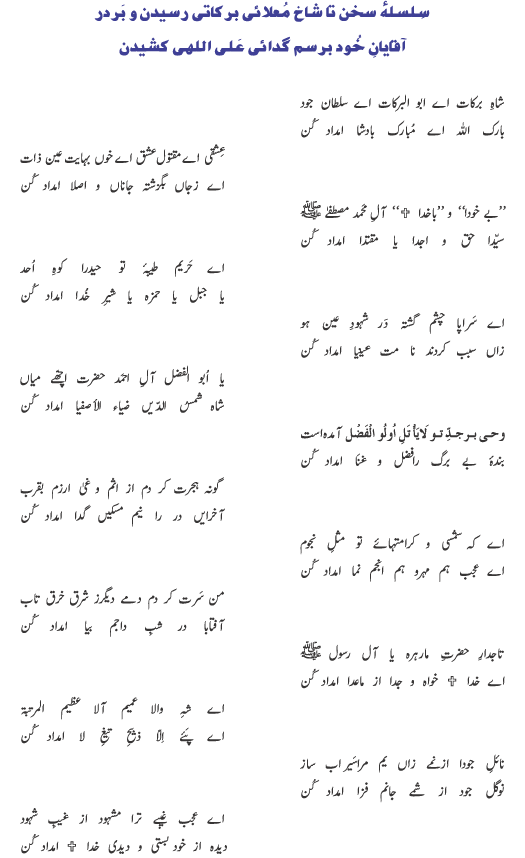 سِلسلۂ سخن تا شاخ مُعلائی برکاتی رسیدن و بَر در
آقایانِ خُود برسم گدائی عَلی اللهی کشیدن
شاہِ برکات اے ابو البرکات اے سلطان جود
بارک اللہ اے مُبارک بادشا امداد کُن
عِشقی اے مقتولِ عشق اے خوں بہایت عین ذات
اے زجاں بگزشتہ جاناں و اصلا امداد کُن
”بے خودا“ و ”باخدا ۞“ آلِ محمد مصطفٰے ﷺ
سیّدا حق و اجدا یا مقتدا امداد کُن
اے حَریم طیبۂ تو حیدرا کوہِ اُحد
یا جبل یا حمزہ یا شیرِ خُدا امداد کُن
اے سَراپا چشم گشتہ در شہودِ عین ہو
زاں سبب کردند نا مت عینیا امداد کُن
یا اَبو الفضل آلِ احمد حضرت اچھے میاں
شاہ شمسُ الدّیں ضیاء الأصفیا امداد کُن
وحی برجدِّ تو لَایَأتَلِ اُولُو الْفَضْل آمدہ است
بندۂ بے برگ رافضل و غنا امداد کُن
گونہ ہجرت کر دم از اثم و غنی ارزم بقرب
آخرایں در را نیم مسکیں گدا امداد کُن
اے کہ شمسی و کرامتہائے تو مثلِ نجوم
اے عجب ہم مہرو ہم انجم نما امداد کُن
من سَرت کر دم دمے دیگرز شرق خرق تاب
آفتابا در شبِ داجم بیا امداد کُن
تاجدارِ حضرتِ مارہرہ یا آل رسول ﷺ
اے خدا ۞ خواہ و جدا از ماعدا امداد کُن
اے شہِ والا عمیم آلا عظیم المرتبۃ
اے پئے اِلَّا ذبیحِ تیغِ لا امداد کُن
نائلِ جودا ازنمے زاں یم مراسَیر اب ساز
نوگل جود از شمے جانم فزا امداد کُن
اے عجب غیبے ترا مشہود از غیبِ شہود
دیدہ از خود بستی و دیدی خدا ۞ امداد کُن